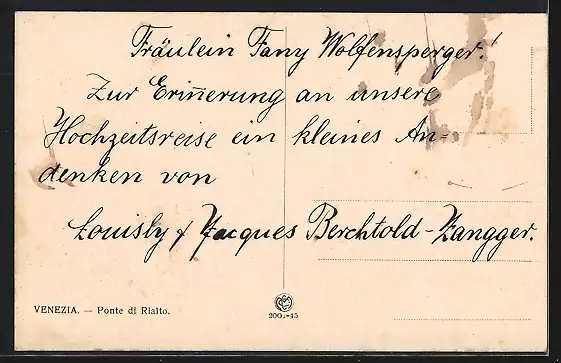 Fräulein Fany Wolfensperger!
Zur Erin̄erung an unsere
Hochzeitsreise ein kleines An-
denken von
Louisly & Jacques Berchtold-Zangger.
VENEZIA. — Ponte di Rialto.
200.-45